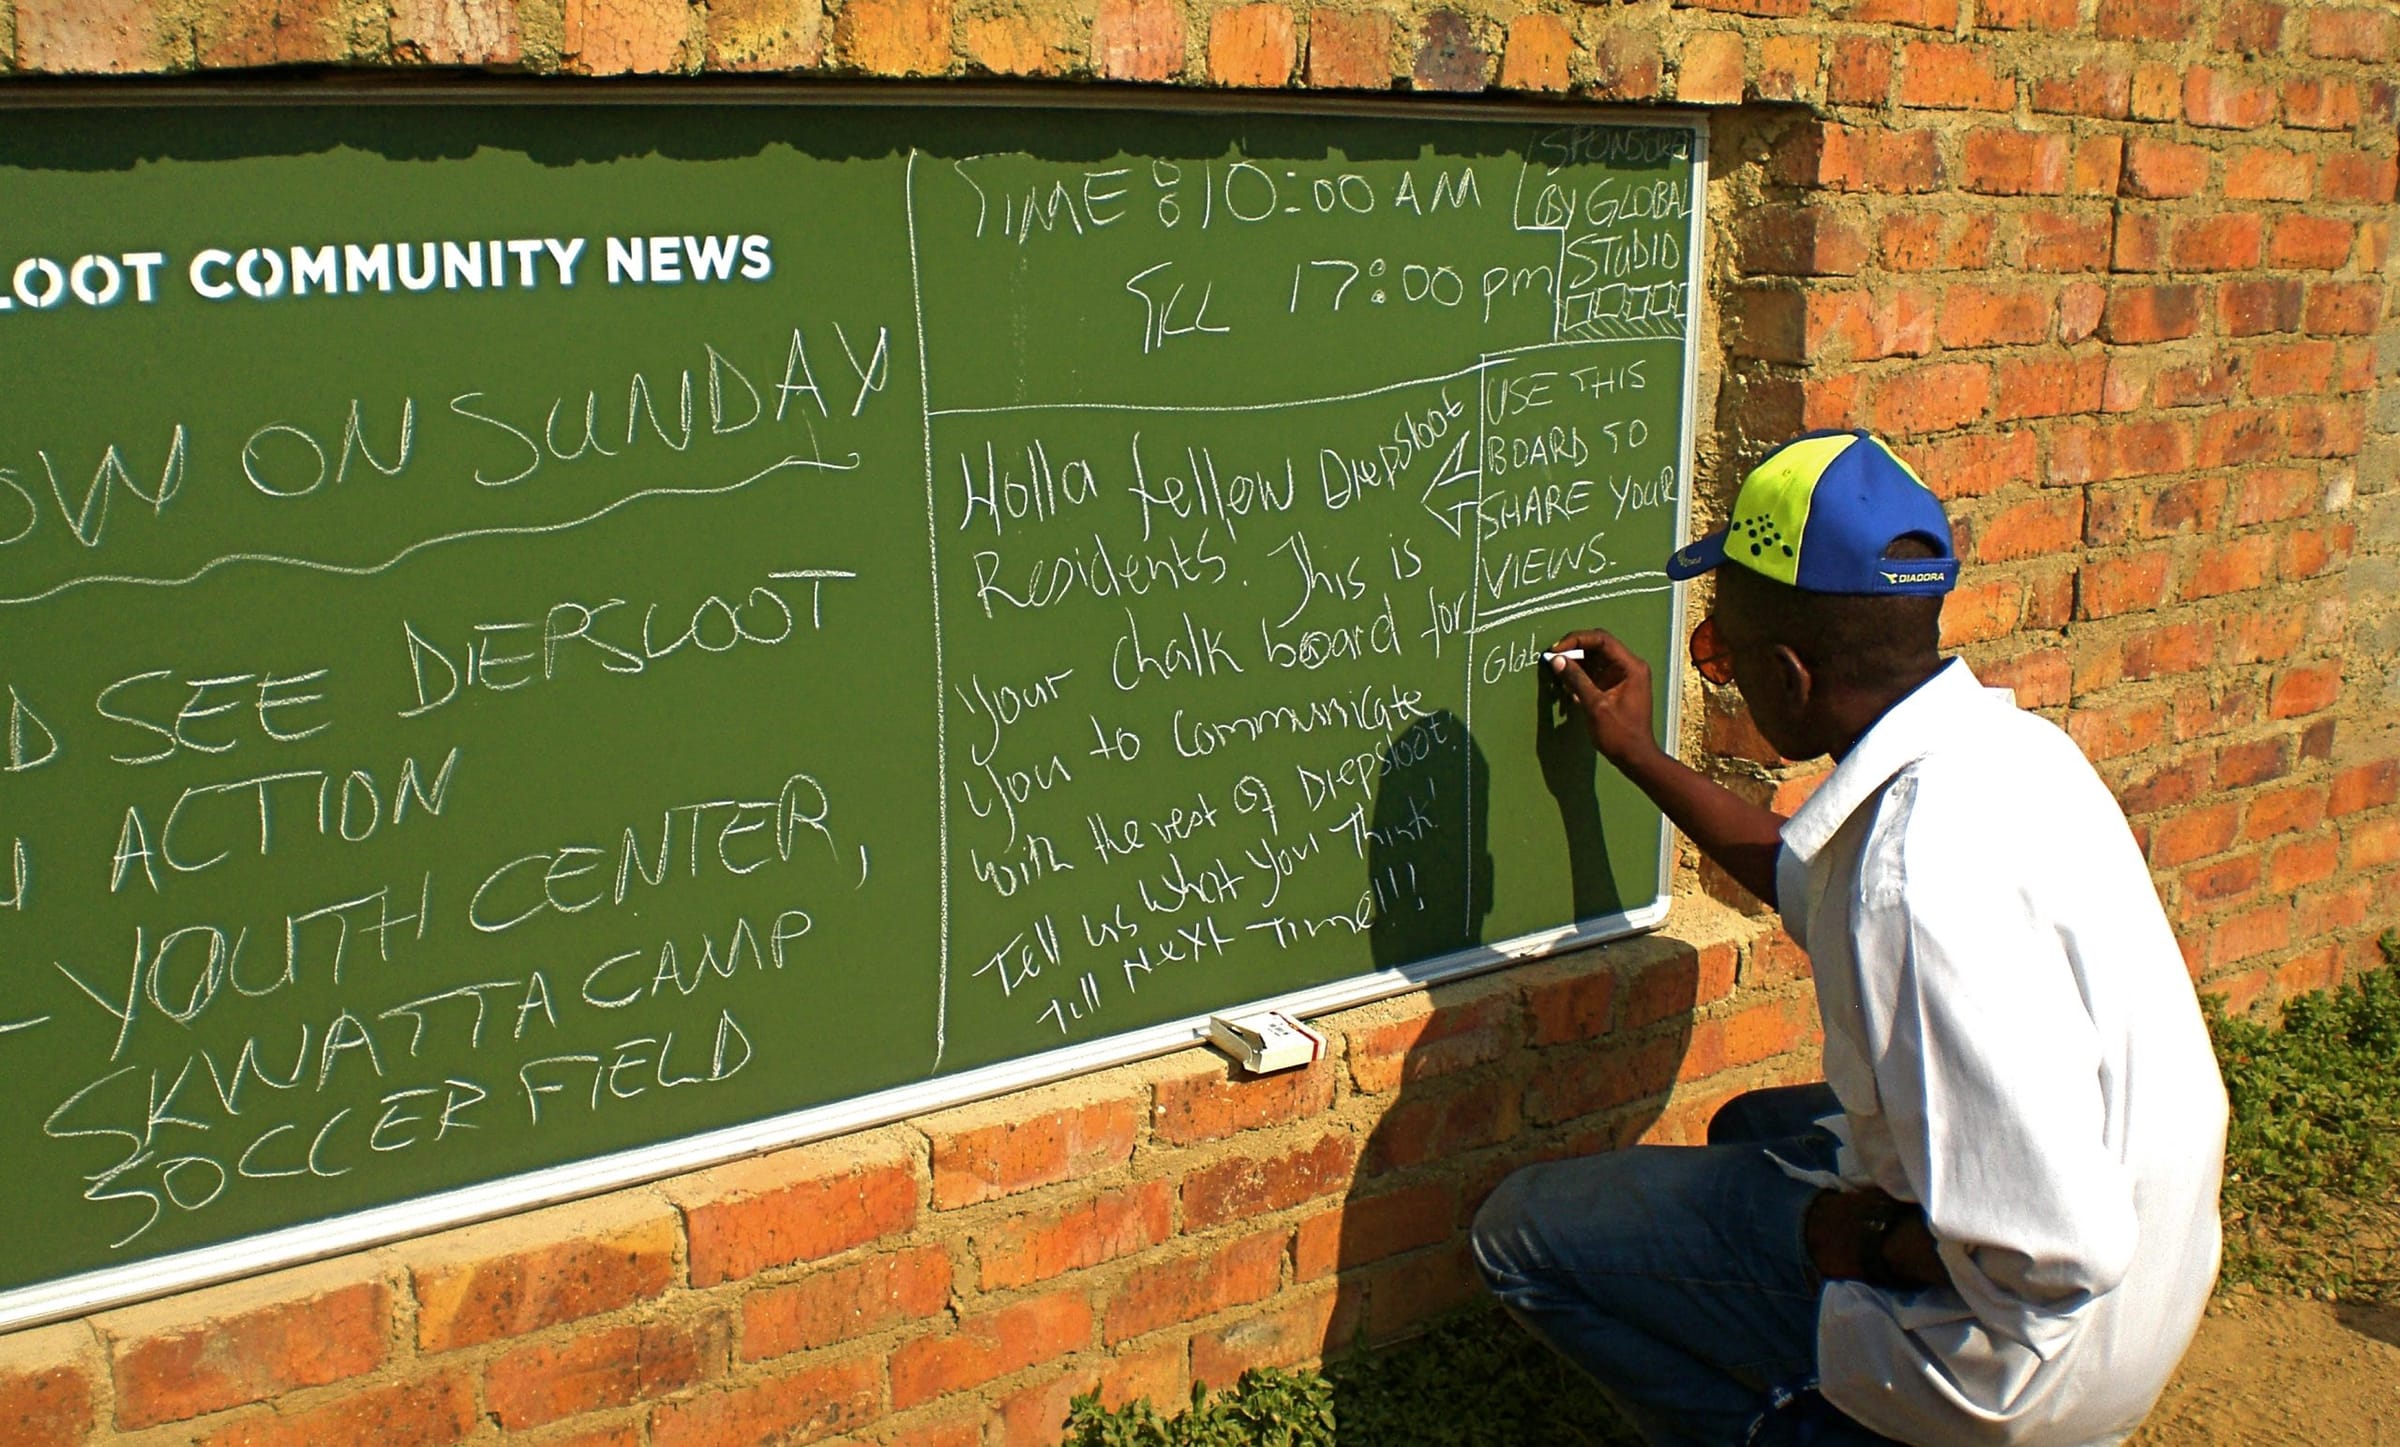 LOOT COMMUNITY NEWS
OW ON SUNDAY
D SEE DIEPSLOOT
ACTION
- YOUTH CENTER,
SKWATTA CAMP
SOCCER FIELD
TIME : 10:00 AM
TILL 17:00 pm
SPONSORED
BY GLOBAL
STUDIO
Holla fellow Diepsloot
Residents. This is
Your chalk board for
you to Communicate
with the rest of Diepsloot!
Tell us what you Think!
Till Next Time!!!
USE THIS
BOARD TO
SHARE YOUR
VIEWS.
Glob
DIADORA